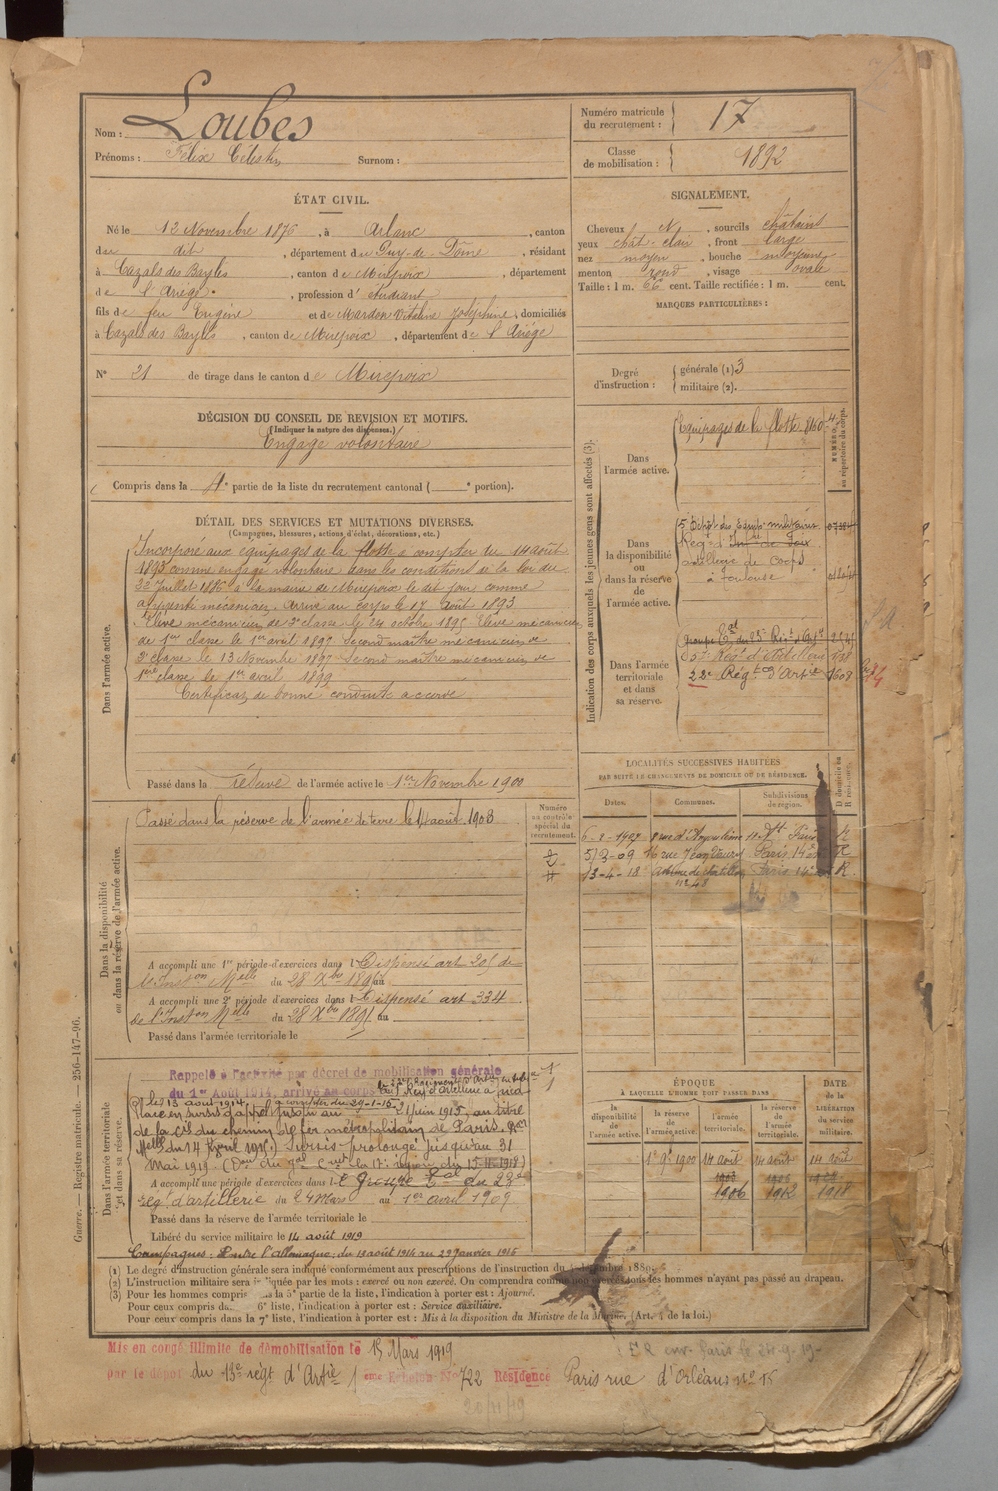 Nom : Loubes
Prénoms : Félix Célestin Surnom :
Numéro matricule du recrutement : 17
Classe de mobilisation : 1892
ÉTAT CIVIL.
Né le 12 Novembre 1876, à Arlanc, canton
du dit, département du Puy-de-Dôme, résidant
à Cazals des Bayles, canton de Mirepoix, département
de l'Ariège, profession d'étudiant
fils de feu Eugène et de Mardon Vitaline Joséphine, domiciliés
à Cazals des Bayles, canton de Mirepoix, département de l'Ariège
N° 21 de tirage dans le canton de Mirepoix
SIGNALEMENT.
Cheveux N, sourcils châtains
yeux chât-clair, front large
nez moyen, bouche moyenne
menton rond, visage ovale
Taille : 1 m. 66 cent. Taille rectifiée : 1 m. cent.
MARQUES PARTICULIÈRES :
Degré d'instruction : générale (1) 3
militaire (2).
DÉCISION DU CONSEIL DE REVISION ET MOTIFS.
(Indiquer la nature des dispenses.)
Engagé volontaire
Compris dans la 4e partie de la liste du recrutement cantonal ( e portion).
Indication des corps auxquels les jeunes gens sont affectés (3).
NUMÉRO au répertoire du corps.
Dans l'armée active.
Equipages de la flotte 8160-4
Dans la disponibilité ou dans la réserve de l'armée active.
5 Dépôt des Equip. militaires
Rég. d'Inf. de
artillerie de corps
à Toulouse
Dans l'armée territoriale et dans sa réserve.
groupe Tal du 23e Régt d'Artie
57e Régt d'Artillerie
22e Régt d'Artie 1608
DÉTAIL DES SERVICES ET MUTATIONS DIVERSES.
(Campagnes, blessures, actions d'éclat, décorations, etc.)
Dans l'armée active.
Incorporé aux équipages de la flotte à compter du 14 août
1893 comme engagé volontaire dans les conditions de la loi du
22 Juillet 1886 à la mairie de Mirepoix le dit jour comme
apprenti mécanicien. Arrivé au corps le 17 Août 1893
Elève mécanicien de 2e classe le 24 octobre 1895 élève mécanicien
de 1ère classe le 1er avril 1897 Second maître mécanicien de
2e classe le 13 Novembre 1897 Second maître mécanicien de
1ère classe le 1er avril 1899
Certificat de bonne conduite accordé
Passé dans la réserve de l'armée active le 1er Novembre 1900
LOCALITÉS SUCCESSIVES HABITÉES
PAR SUITE DE CHANGEMENTS DE DOMICILE OU DE RÉSIDENCE.
Dates. Communes. Subdivisions de région. D domicile ou R résidence.
8 rue d'Angoulême Paris R
5/3-09 16 rue Jean Paris 14e R
13-4-18 Avenue de Chatillon n° 48 Paris 14e R
Dans la disponibilité ou dans la réserve de l'armée active.
Numéro au contrôle spécial du recrutement.
Passé dans la réserve de l'armée de terre le 14 août 1903
A accompli une 1re période d'exercices dans l Dispensé art 205 de
l'Inston Melle du 28 Xbre 1895 au
A accompli une 2e période d'exercices dans l Dispensé art 334
de l'Inston Melle du 28 Xbre 1895 au
Passé dans l'armée territoriale le
Dans l'armée territoriale et dans sa réserve.
Rappelé à l'activité par décret de mobilisation générale
du 1er Août 1914, arrivé au corps
Placé en sursis d'appel jusqu'au 21 juin 1915, au titre
de la Cie du chemin de fer métropolitain de Paris.
Melle du 14 Avril 1915.) Sursis prolongé jusqu'au 31
Mai 1919.
A accompli une période d'exercices dans le Groupe Tal du 23e
régt d'artillerie du 24 Mars au 1er avril 1909
Passé dans la réserve de l'armée territoriale le
Libéré du service militaire le 14 août 1919
Campagnes : Contre l'Allemagne : du 13 août 1914 au 29 janvier 1915
ÉPOQUE
À LAQUELLE L'HOMME DOIT PASSER DANS
la disponibilité de l'armée active. la réserve de l'armée active. l'armée territoriale. la réserve de l'armée territoriale. DATE de la LIBÉRATION du service militaire.
1er 9bre 1900 14 août 1903 14 août 14 août
1906 1912 1918
(1) Le degré d'instruction générale sera indiqué conformément aux prescriptions de l'instruction du décembre 1889.
(2) L'instruction militaire sera indiquée par les mots : exercé ou non exercé. On comprendra comme non exercés tous les hommes n'ayant pas passé au drapeau.
(3) Pour les hommes compris la 5e partie de la liste, l'indication à porter est : Ajourné.
Pour ceux compris da 6e liste, l'indication à porter est : Service auxiliaire.
Pour ceux compris dans la 7e liste, l'indication à porter est : Mis à la disposition du Ministre de la Marine. (Art. 4 de la loi.)
Guerre. — Registre matricule. — 256-147-96.
Mis en congé illimité de démobilisation le 15 Mars 1919
par le dépôt du 13e régt d'Artie Echelon N° 722 Résidence Paris rue d'Orléans n° 15